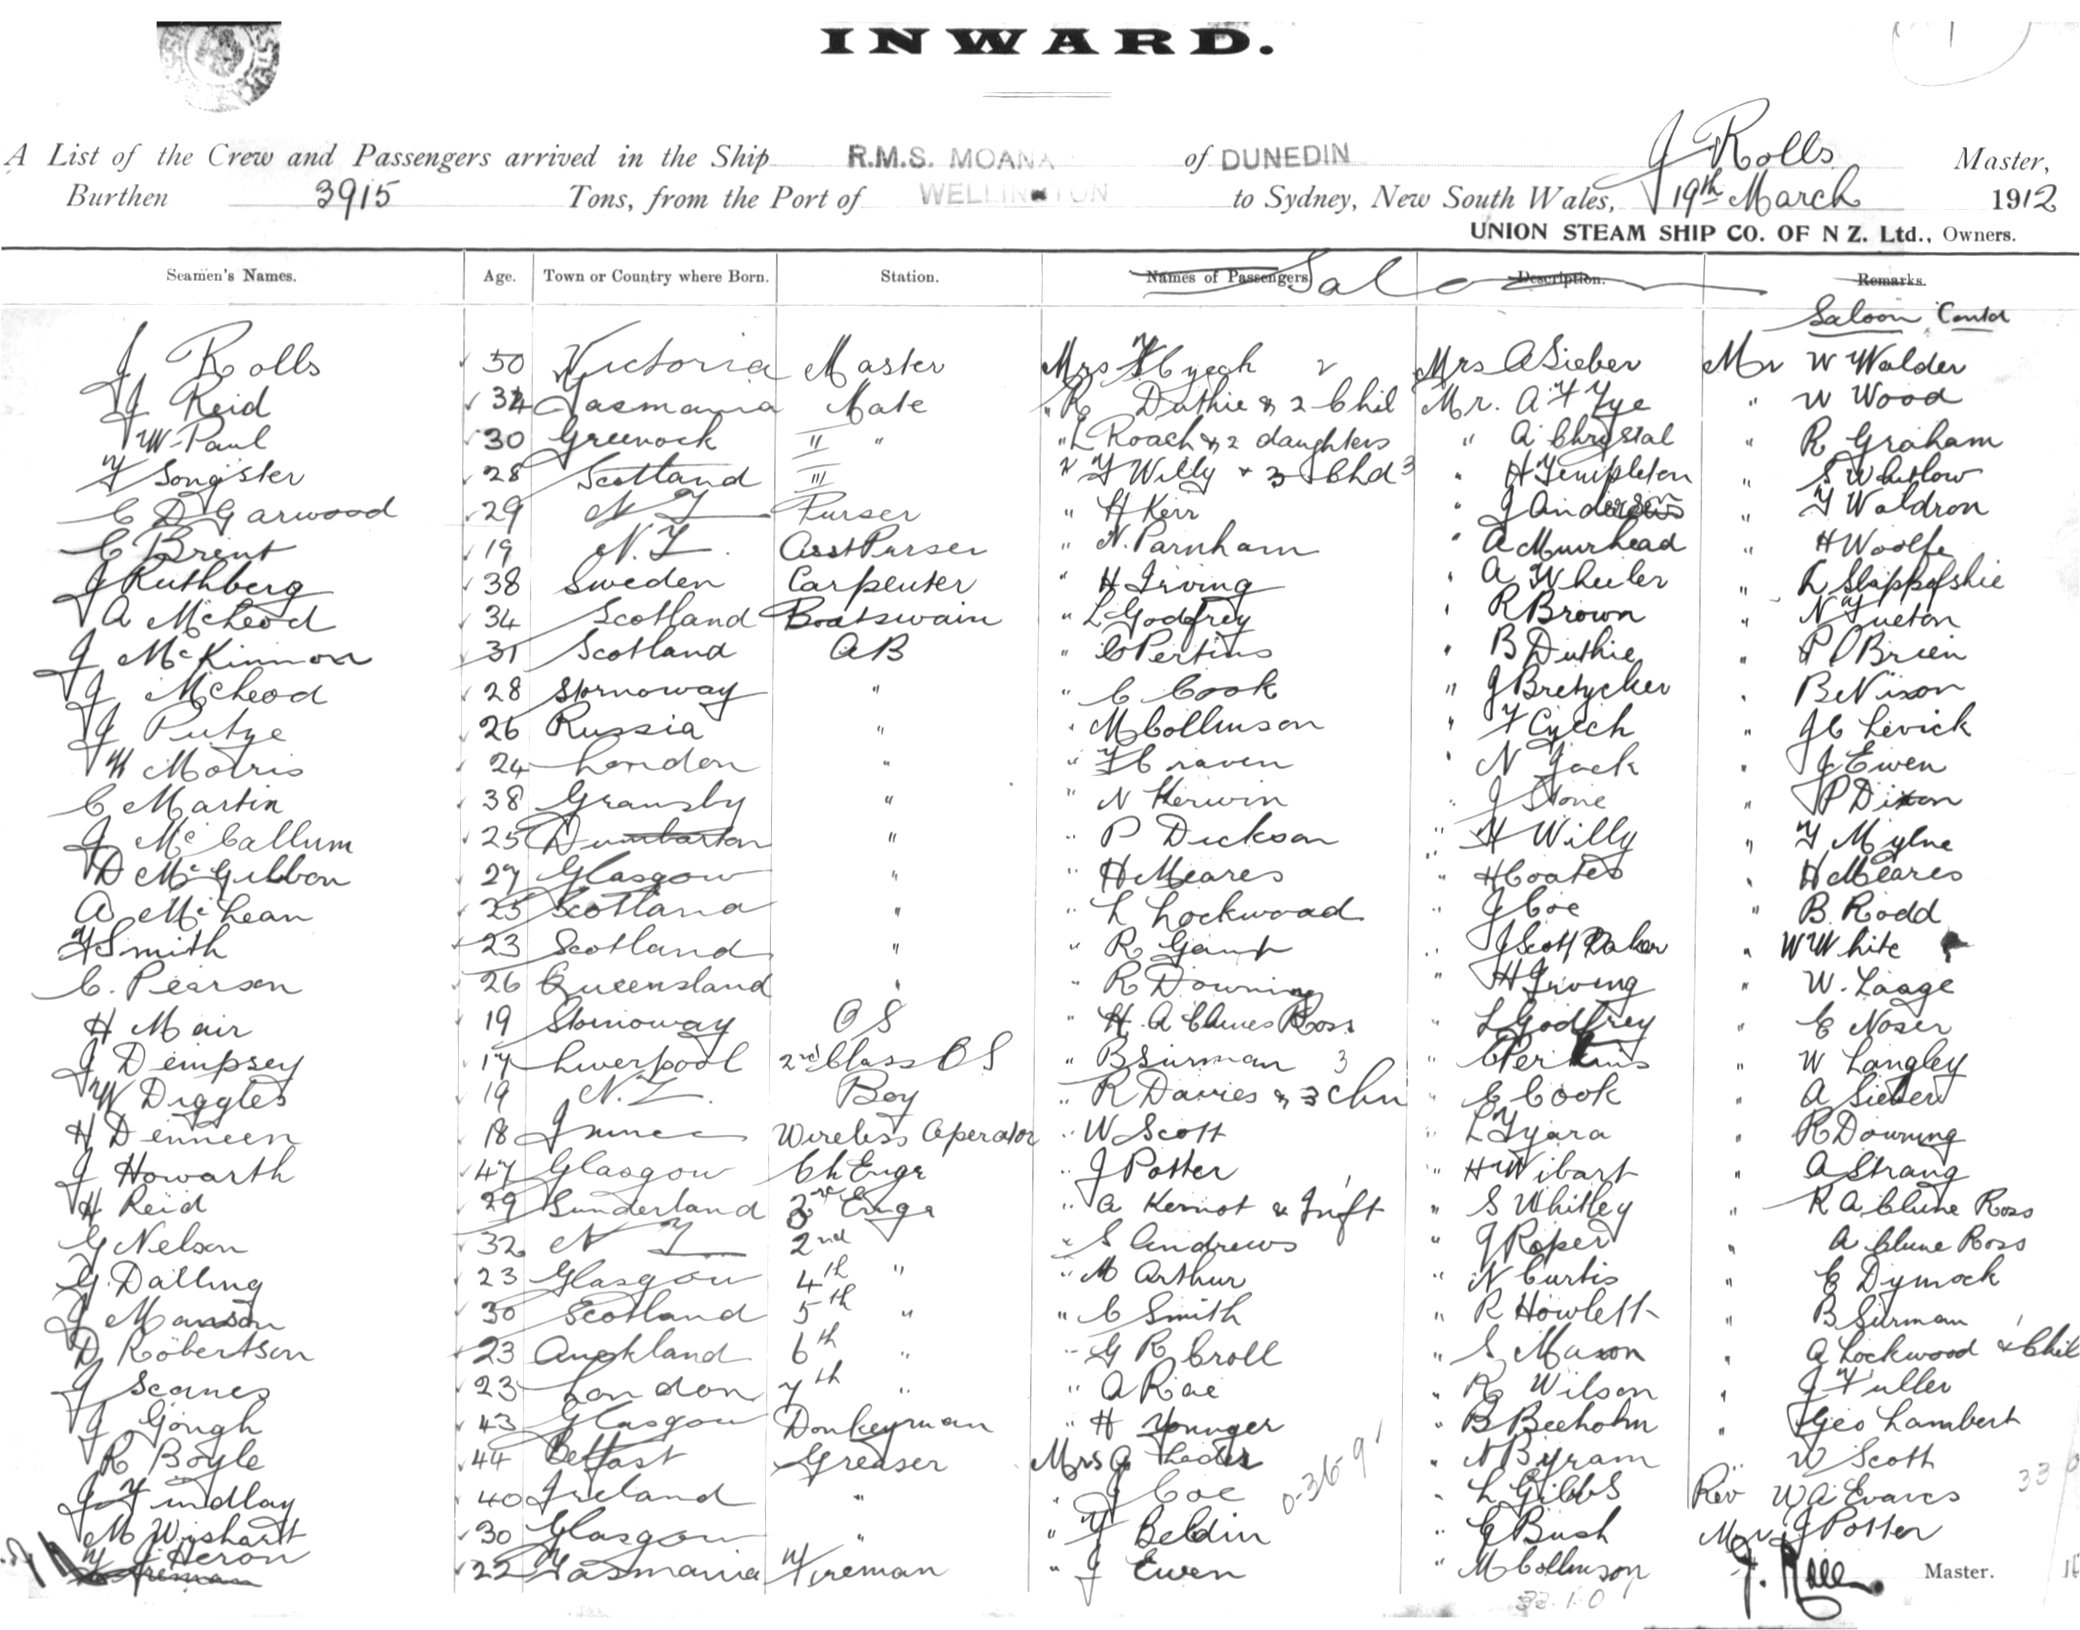 INWARD.
1
A List of the Crew and Passengers arrived in the Ship R.M.S. MOANA of DUNEDIN J Rolls Master,
Burthen 3915 Tons, from the Port of WELLINGTON to Sydney, New South Wales, 19th March 1912
UNION STEAM SHIP CO. OF N Z. Ltd., Owners.
Seamen's Names. Age. Town or Country where Born. Station. Names of Passengers Saloon Description. Remarks.
Saloon Contd
J Rolls 50 Victoria Master Mrs F Czech Mrs A Sieber Mr W Walder
J Reid Tasmania Mate " R Duthie & 2 Chil Mr. A F Tye " W Wood
W Paul 30 Greenock II " " L Roach & 2 daughters " A Chrystal " R Graham
F Songster 28 Scotland III " F Willy & 3 Chd 3 " H Templeton " S Whitlow
C D Garwood 29 N Z Purser " H Kerr " J Anderson " F Waldron
C Brent 19 N.Z. Asst Purser " N. Parnham " A Muirhead " H Woolfe
J Ruthberg 38 Sweden Carpenter " H Irving " A Wheeler " L
A McLeod 34 Scotland Boatswain " L Godfrey " R Brown " N
J McKinnon 31 Scotland AB " C Perkins " B Duthie " P O'Brien
J McLeod 28 Stornoway " " C Cook " J Bretycker " B Nixon
J Putze 26 Russia " " M Collinson " F Czech " J C Levick
W Morris 24 London " " F Craven " N Jack " J Ewen
C Martin 38 Gramsby " " N Kerwin " J Stone " P Dixon
J McCallum 25 Dumbarton " " P Dickson " H Willy " F Mylne
D McGibbon 27 Glasgow " " H Meares " H Coates " H Meares
A McLean 25 Scotland " " L Lockwood " J Coe " B. Rodd
F Smith 23 Scotland " " R Gant " J Scott Baker " W White
C. Pearson 26 Queensland " " R Downing " H Irving " W. Laage
H Mair 19 Stornoway OS " H. A Clunes Ross " L Godfrey " C Noser
J Dempsey 17 Liverpool 2nd Class OS " B Surman 3 " C Perkins " W Langley
W Diggles 19 N.Z. Boy " R Davies & 3 Chn " C Cook " A Sieber
H Denneen 18 Wireless Operator " W Scott " L Tyara " R Downing
J Howarth 47 Glasgow Ch Engr " J Potter " H Wibart " A Strang
H Reid 29 Sunderland Engr " A Kernot & Inft 1 " S Whitley " R A Clune Ross
G Nelson 32 N Z 2nd " S Andrews " J Roper " A Clune Ross
G. Dalling 23 Glasgow 4th " " M Arthur " N Curtis " C Dymock
J Manson 30 Scotland 5th " " C Smith " R Howlett " B Surman
D Robertson 23 Auckland 6th " " G R Croll " S Mason " A Lockwood & Chil 1
J Scanes 23 London 7th " " A Rae " R Wilson " J Fuller
J Gough 43 Glasgow Donkeyman " H Younger " B Beeholm " Geo Lambert
R Boyle 44 Belfast Greaser Mrs A " N Byram " W Scott
J Findlay 40 Ireland " " J Coe " L Gibbs Rev W A Evans
M Wishart 30 Glasgow " " F Beldin " C Bush Mr J Potter
J Heron 22 Tasmania Fireman " J Ewen " M Collinson J. Rolls Master.
0-36-9
33.1.0
33